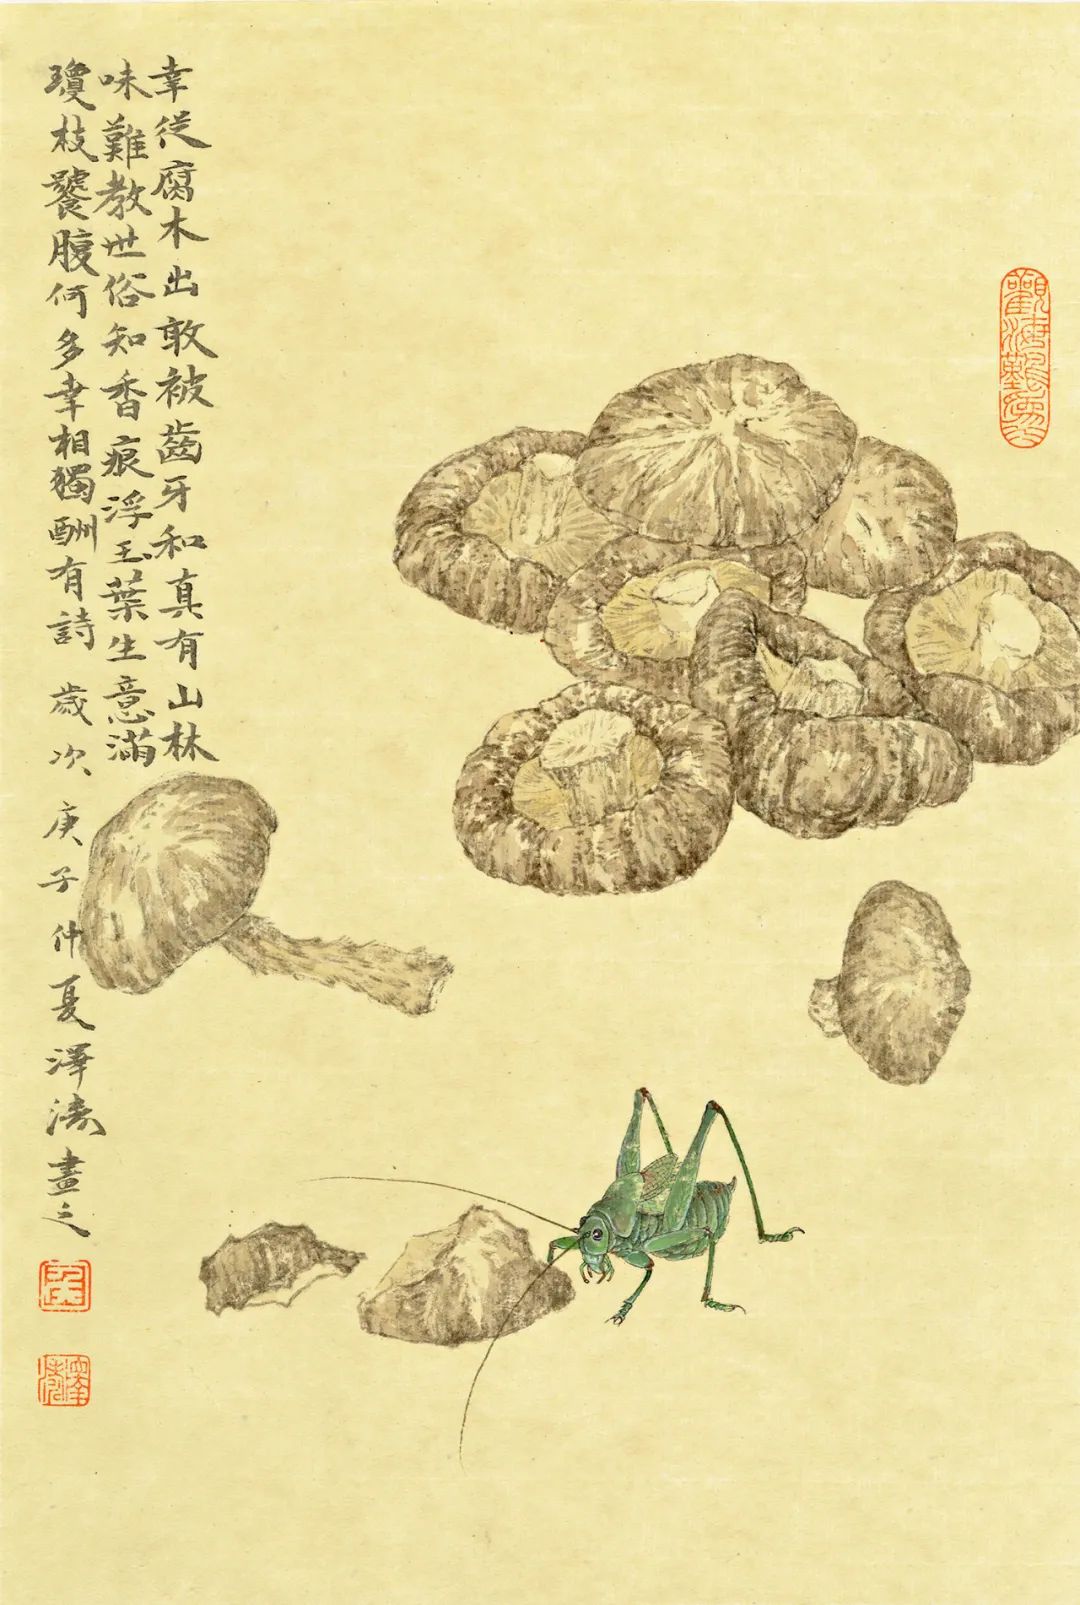 幸從腐木出敢被齒牙和真有山林
味難教世俗知香痕浮玉葉生意滿
瓊枝饕腹何多幸相獨酬有詩 歲次庚子仲夏澤濤畫之